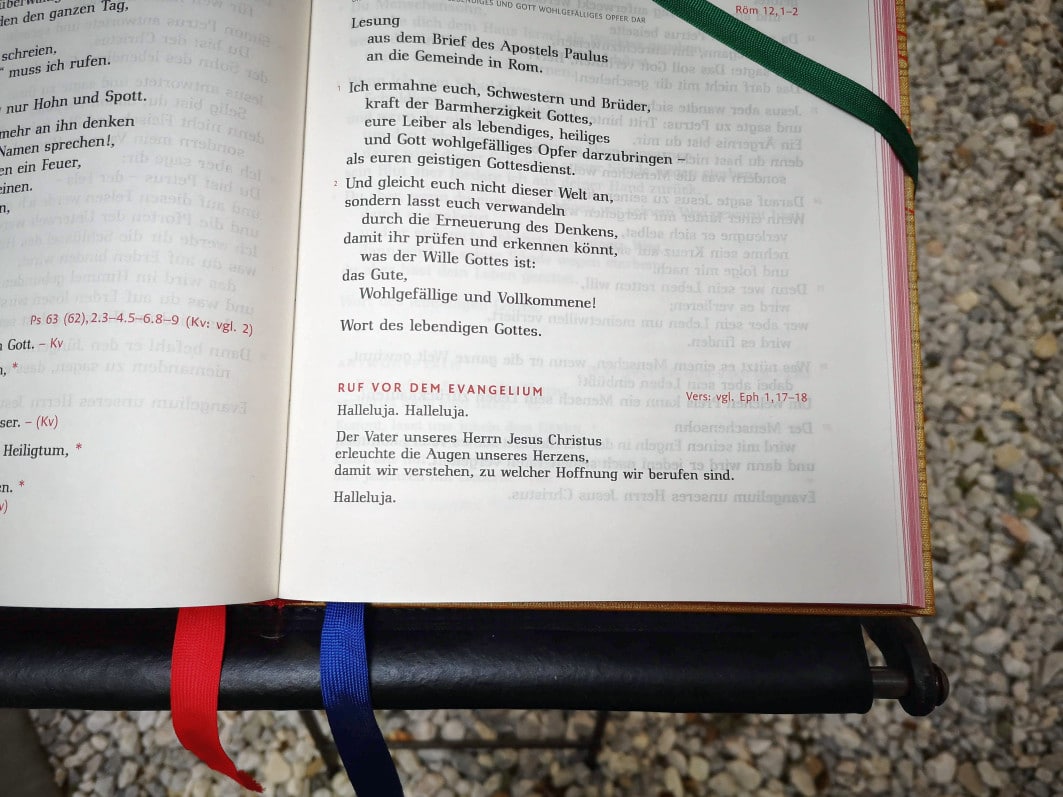 den den ganzen Tag,
schreien,
muss ich rufen.
nur Hohn und Spott.
mehr an ihn denken
Namen sprechen!,
en ein Feuer,
einen.
n,
Ps 63 (62),2.3–4.5–6.8–9 (Kv: vgl. 2)
Gott. – Kv
n, *
ser. – (Kv)
Heiligtum, *
en. *
v)
NDIGES UND GOTT WOHLGEFÄLLIGES OPFER DAR
Röm 12,1–2
Lesung
aus dem Brief des Apostels Paulus
an die Gemeinde in Rom.
1 Ich ermahne euch, Schwestern und Brüder,
kraft der Barmherzigkeit Gottes,
eure Leiber als lebendiges, heiliges
und Gott wohlgefälliges Opfer darzubringen –
als euren geistigen Gottesdienst.
2 Und gleicht euch nicht dieser Welt an,
sondern lasst euch verwandeln
durch die Erneuerung des Denkens,
damit ihr prüfen und erkennen könnt,
was der Wille Gottes ist:
das Gute,
Wohlgefällige und Vollkommene!
Wort des lebendigen Gottes.
RUF VOR DEM EVANGELIUM
Vers: vgl. Eph 1,17–18
Halleluja. Halleluja.
Der Vater unseres Herrn Jesus Christus
erleuchte die Augen unseres Herzens,
damit wir verstehen, zu welcher Hoffnung wir berufen sind.
Halleluja.